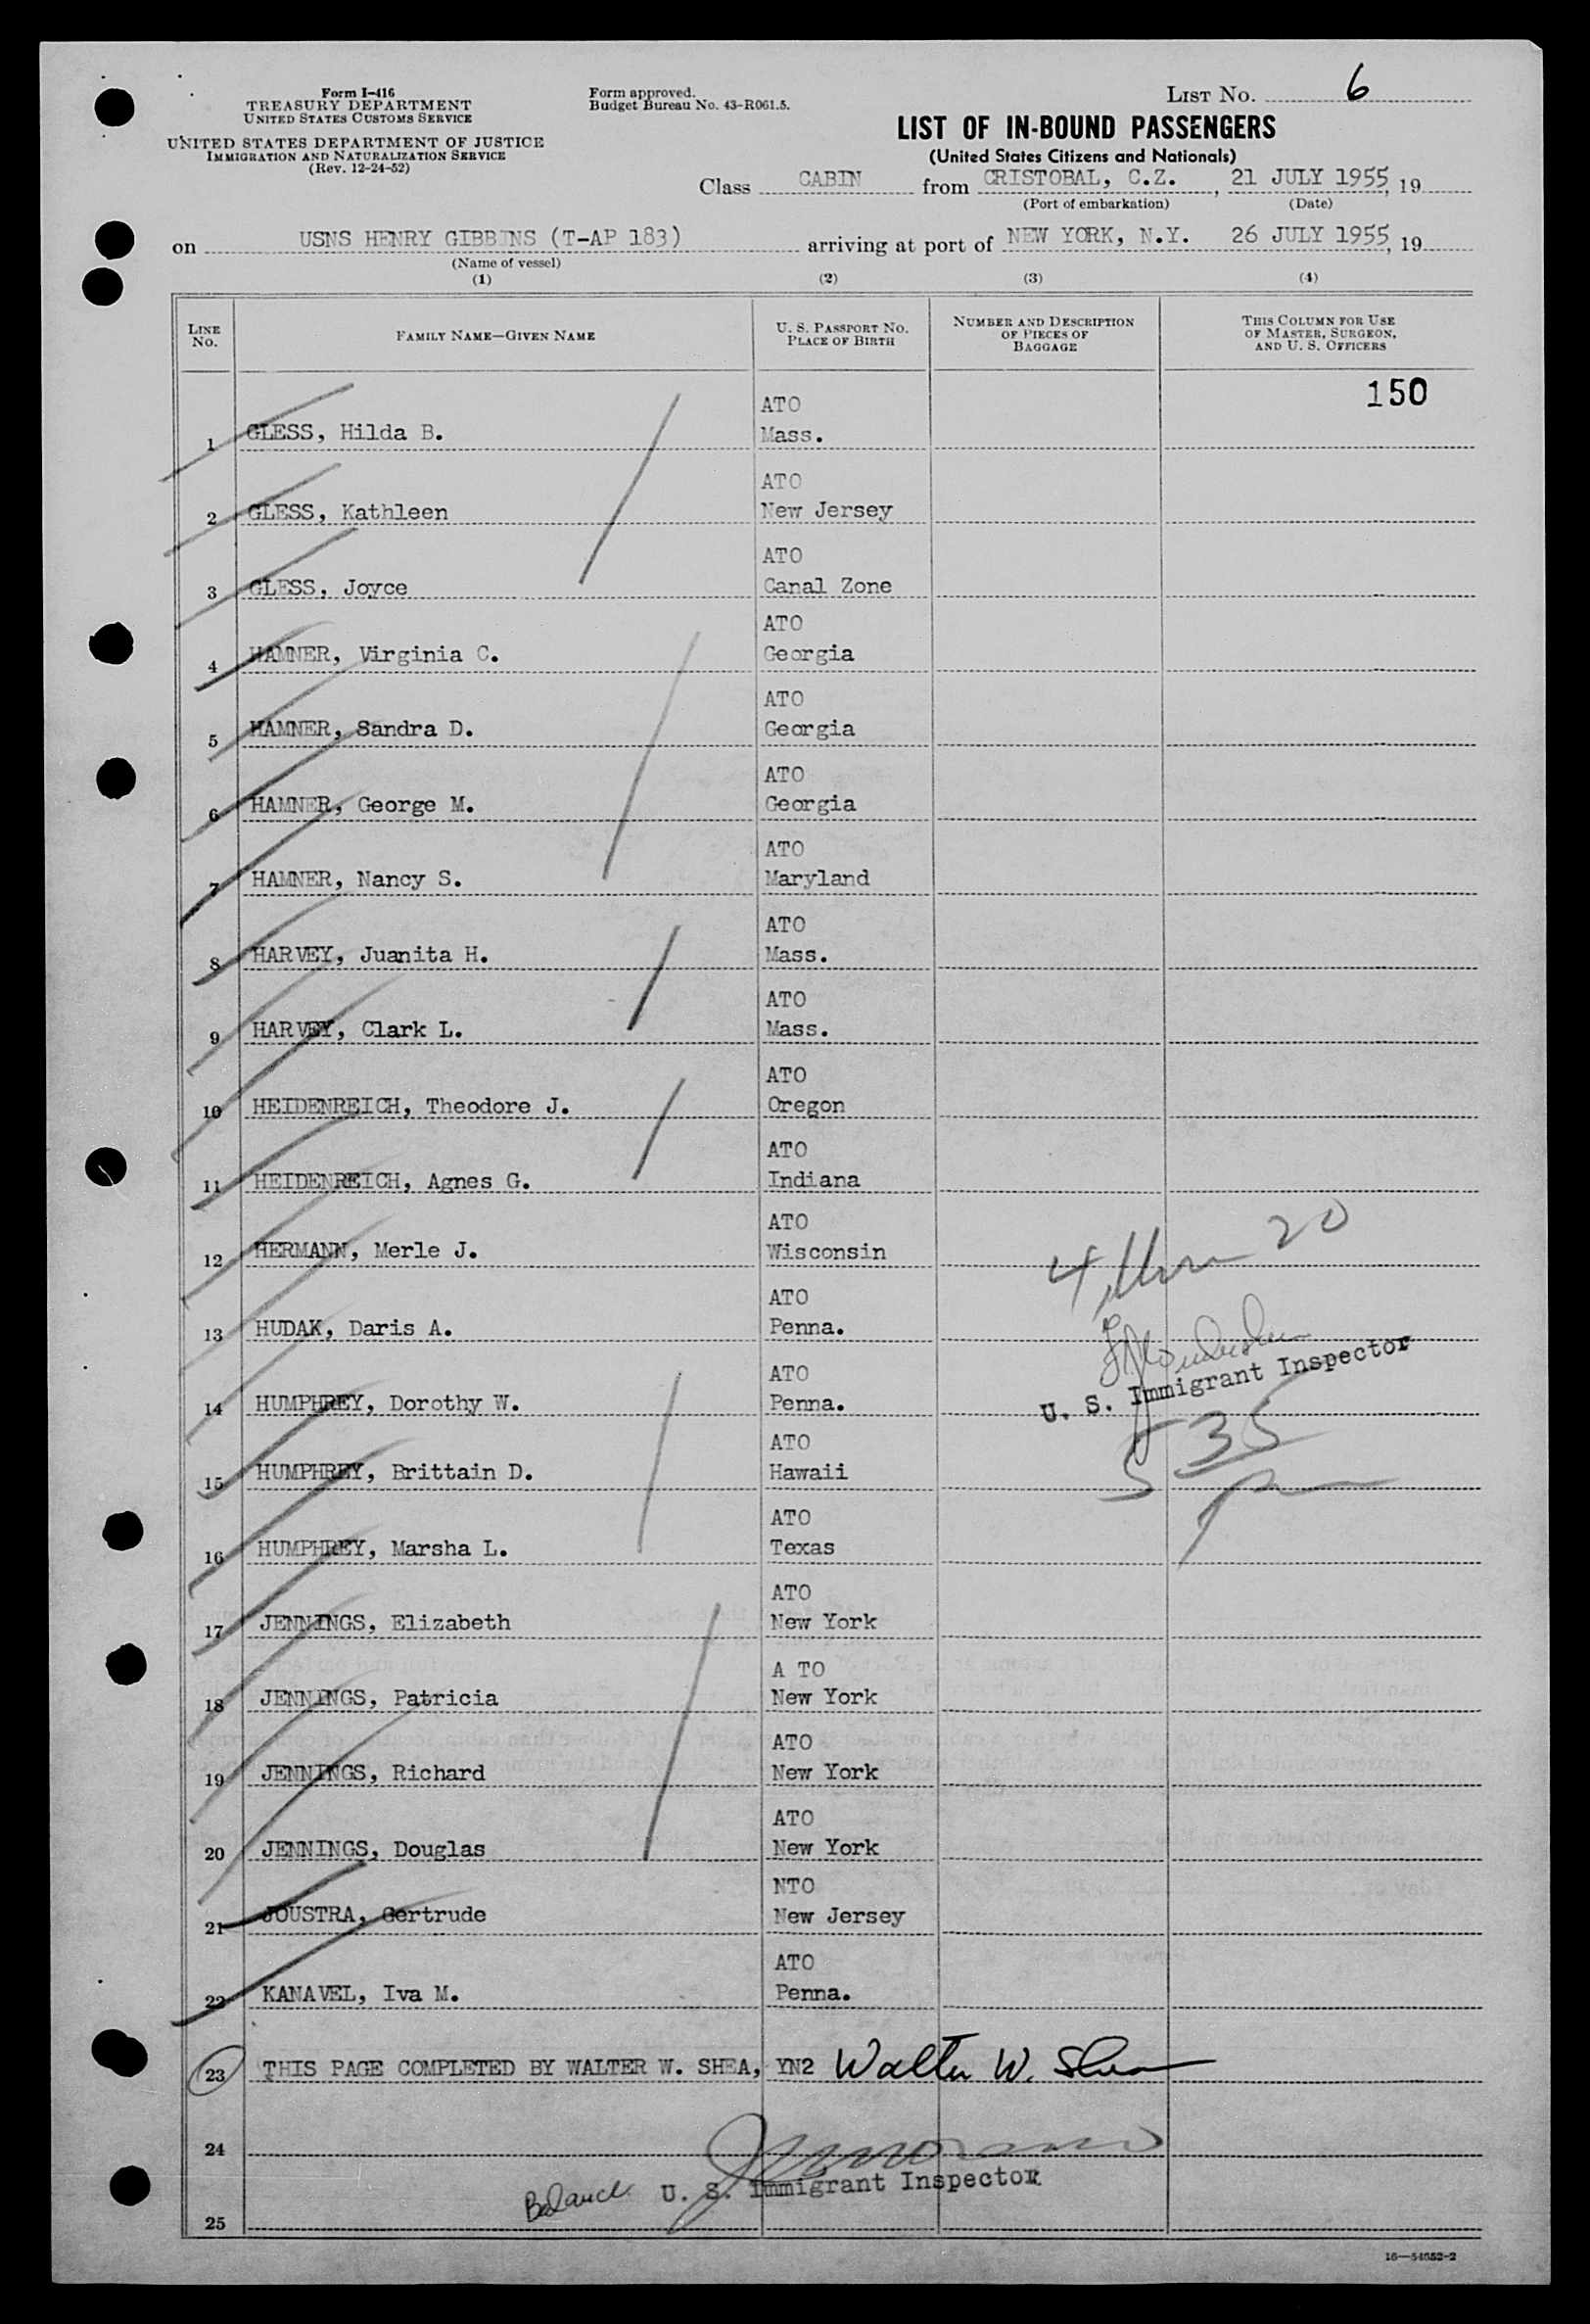 Form I-416
TREASURY DEPARTMENT
UNITED STATES CUSTOMS SERVICE
UNITED STATES DEPARTMENT OF JUSTICE
IMMIGRATION AND NATURALIZATION SERVICE
(Rev. 12-24-52)
Form approved.
Budget Bureau No. 43-R061.5.
LIST NO. 6
LIST OF IN-BOUND PASSENGERS
(United States Citizens and Nationals)
Class CABIN from CRISTOBAL, C.Z., 21 JULY 1955, 19
(Port of embarkation) (Date)
on USNS HENRY GIBBINS (T-AP 183) arriving at port of NEW YORK, N.Y. 26 JULY 1955, 19
(Name of vessel)
(1) (2) (3) (4)
LINE NO. FAMILY NAME—GIVEN NAME U. S. PASSPORT NO. PLACE OF BIRTH NUMBER AND DESCRIPTION OF PIECES OF BAGGAGE THIS COLUMN FOR USE OF MASTER, SURGEON, AND U. S. OFFICERS
150
ATO
1 GLESS, Hilda B. Mass.
ATO
2 GLESS, Kathleen New Jersey
ATO
3 GLESS, Joyce Canal Zone
ATO
4 HAMNER, Virginia C. Georgia
ATO
5 HAMNER, Sandra D. Georgia
ATO
6 HAMNER, George M. Georgia
ATO
7 HAMNER, Nancy S. Maryland
ATO
8 HARVEY, Juanita H. Mass.
ATO
9 HARVEY, Clark L. Mass.
ATO
10 HEIDENREICH, Theodore J. Oregon
ATO
11 HEIDENREICH, Agnes G. Indiana
ATO
12 HERMANN, Merle J. Wisconsin
20
ATO
13 HUDAK, Daris A. Penna.
U. S. Immigrant Inspector
ATO
14 HUMPHREY, Dorothy W. Penna.
5 35
ATO
15 HUMPHREY, Brittain D. Hawaii
ATO
16 HUMPHREY, Marsha L. Texas
ATO
17 JENNINGS, Elizabeth New York
A TO
18 JENNINGS, Patricia New York
ATO
19 JENNINGS, Richard New York
ATO
20 JENNINGS, Douglas New York
NTO
21 JOUSTRA, Gertrude New Jersey
ATO
22 KANAVEL, Iva M. Penna.
23 THIS PAGE COMPLETED BY WALTER W. SHEA, YN2 Walter W. Shea
24
Balance U. S. Immigrant Inspector
25
16—54652-2